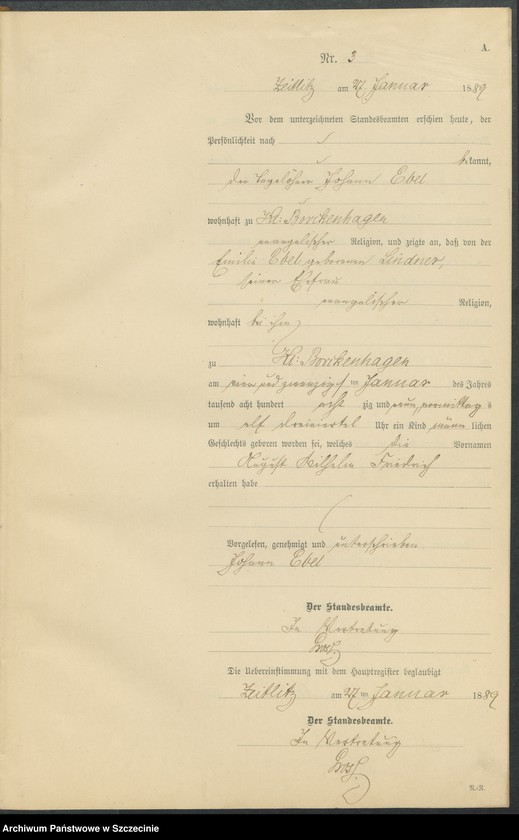 A.
Nr. 3
Zeitlitz am 27. Januar 1889
Vor dem unterzeichneten Standesbeamten erschien heute, der
Persönlichkeit nach
bekannt,
der Tagelöhner Johann Ebel
wohnhaft zu Kl: Borckenhagen
evangelischer Religion, und zeigte an, daß von der
Emilie Ebel geborenen Lindner,
seiner Ehefrau
evangelischer Religion,
wohnhaft bei ihm
zu Kl: Borckenhagen
am vier und zwanzigsten Januar des Jahres
tausend acht hundert acht zig und neun, vormittags
um elf dreiviertel Uhr ein Kind männlichen
Geschlechts geboren worden sei, welches die Vornamen
August Wilhelm Friedrich
erhalten habe
Vorgelesen, genehmigt und unterschrieben
Johann Ebel
Der Standesbeamte.
In Vertretung
Die Uebereinstimmung mit dem Hauptregister beglaubigt
Zeitlitz am 27 ten Januar 1889
Der Standesbeamte.
In Vertretung
R.-R.
Archiwum Państwowe w Szczecinie